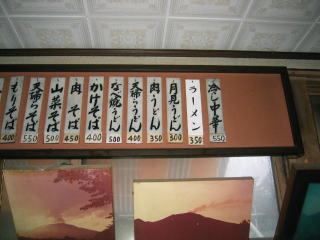 冷し中華 550
ラーメン 350
月見うどん 300
肉うどん 350
天ぷらうどん 400
なべ焼うどん 500
かけそば 400
肉そば 450
山菜そば 500
天ぷらそば 550
もりそば 400